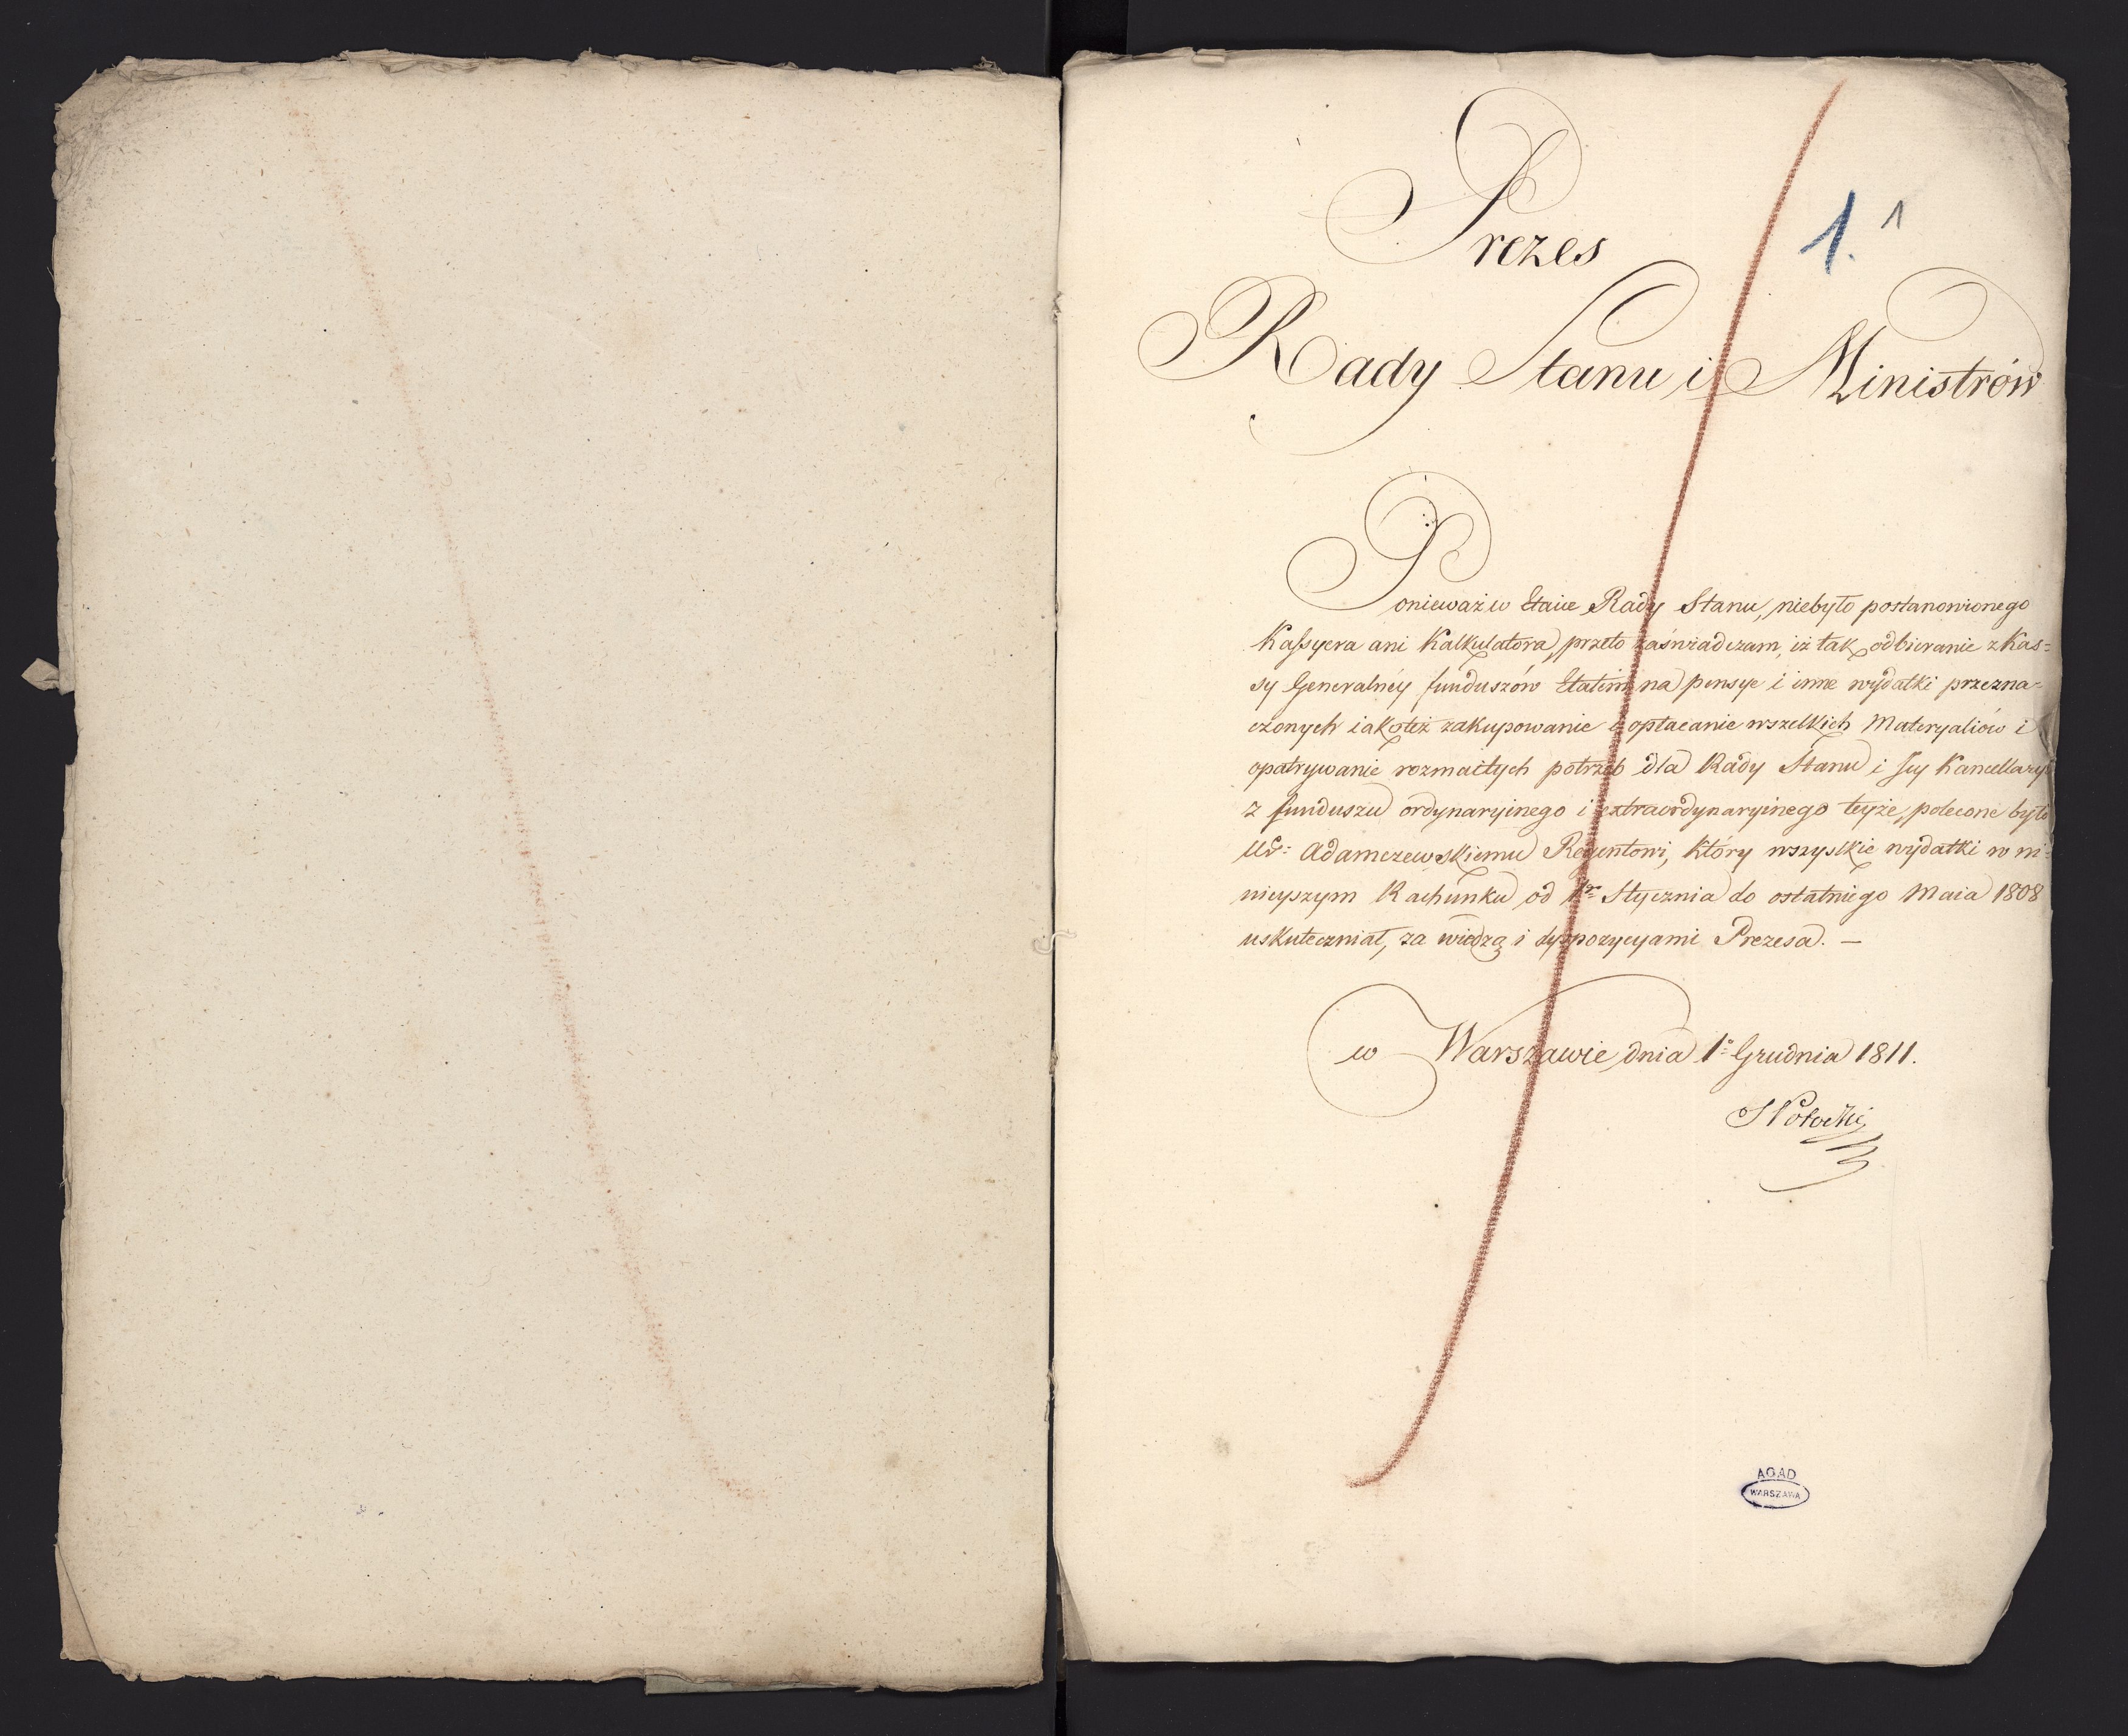 1. 1
Prezes
Rady Stanu i Ministrów
Ponieważ w Etacie Rady Stanu, niebyło postanowionego
Kassyera ani Kalkulatora, przeto zaświadczam, iż tak odbieranie z Kas=
sy Generalnéy funduszów Etatem na pensye i inne wydatki przezna=
czonych iako też zakupowanie i opłacanie wszelkich Materyałów i
opatrywanie rozmaitych potrzeb dla Rady Stanu i Jey Kancellaryi
z funduszu ordynaryinego i extraordynaryinego teyże, polecone było
Adamczewskiemu Regentowi, który wszystkie wydatki w ni=
nieyszym Rachunku od Stycznia do ostatniego Maia 1808
uskuteczniał, za wiedzą i dyspozycyami Prezesa. —
w Warszawie dnia 1o Grudnia 1811.
SPotocki
AGAD
WARSZAWA